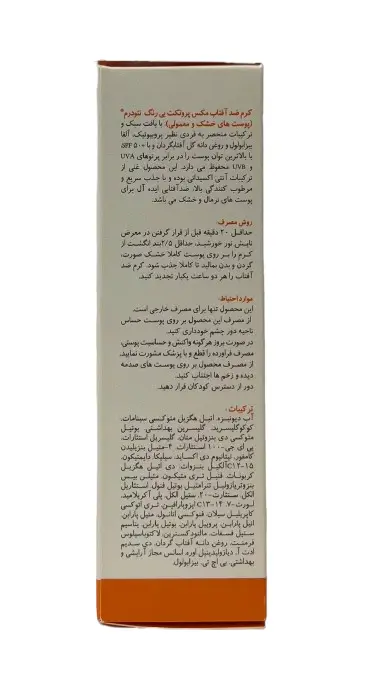 کرم ضد آفتاب مکس پروتکت بی رنگ نئودرم®
(پوست های خشک و معمولی) با بافت سبک و
ترکیبات منحصر به فردی نظیر پروبیوتیک، آلفا
بیزابولول و روغن دانه گل آفتابگردان و با +SPF 50
با بالاترین توان پوست را در برابر پرتوهای UVA
و UVB محفوظ می دارد. این محصول غنی از
ترکیبات آنتی اکسیدانی بوده و با جذب سریع و
مرطوب کنندگی بالا، ضدآفتابی ایده آل برای
پوست های نرمال و خشک می باشد.
روش مصرف:
حداقل 20 دقیقه قبل از قرار گرفتن در معرض
تابش نور خورشید، حداقل 2/5 بند انگشت از
کرم را بر روی پوست کاملا خشک صورت،
گردن و بدن بمالید تا کاملا جذب شود. کرم ضد
آفتاب را هر دو ساعت یکبار تجدید کنید.
موارد احتیاط:
این محصول تنها برای مصرف خارجی است.
از مصرف این محصول بر روی پوست حساس
ناحیه دور چشم خودداری کنید.
در صورت بروز هرگونه واکنش و حساسیت پوستی،
مصرف فرآورده را قطع و با پزشک مشورت نمایید.
از مصرف محصول بر روی پوست های صدمه
دیده و زخم ها اجتناب کنید.
دور از دسترس کودکان قرار دهید.
ترکیبات:
آب دیونیزه، اتیل هگزیل متوکسی سینامات،
کوکوگلیسرید، گلیسرین بهداشتی، بوتیل
متوکسی دی بنزوئیل متان، گلیسریل استئارات،
پی ای جی-100 استئارات، 4-متیل بنزیلیدن
کامفور، تیتانیوم دی اکساید، سیلیکا دایمتیکون،
C12-15 آلکیل بنزوات، دی اتیل هگزیل
کربونات، فنیل تری متیکون، متیلن بیس
بنزوتریازولیل تترامتیل بوتیل فنول، استئاریل
الکل، ستئارت-20، ستیل الکل، پلی آکریلامید،
لورت-7، C13-14 ایزوپارافین، تری اتوکسی
کاپریلیل سیلان، فنوکسی اتانول، متیل پارابن،
اتیل پارابن، پروپیل پارابن، بوتیل پارابن، پتاسیم
ستیل فسفات، مالتودکسترین، لاکتوباسیلوس
فرمنت، روغن دانه آفتاب گردان، دی سدیم
ادت آ، دیازولیدینیل اوره، اسانس مجاز آرایشی و
بهداشتی، بی اچ تی، بیزابولول.